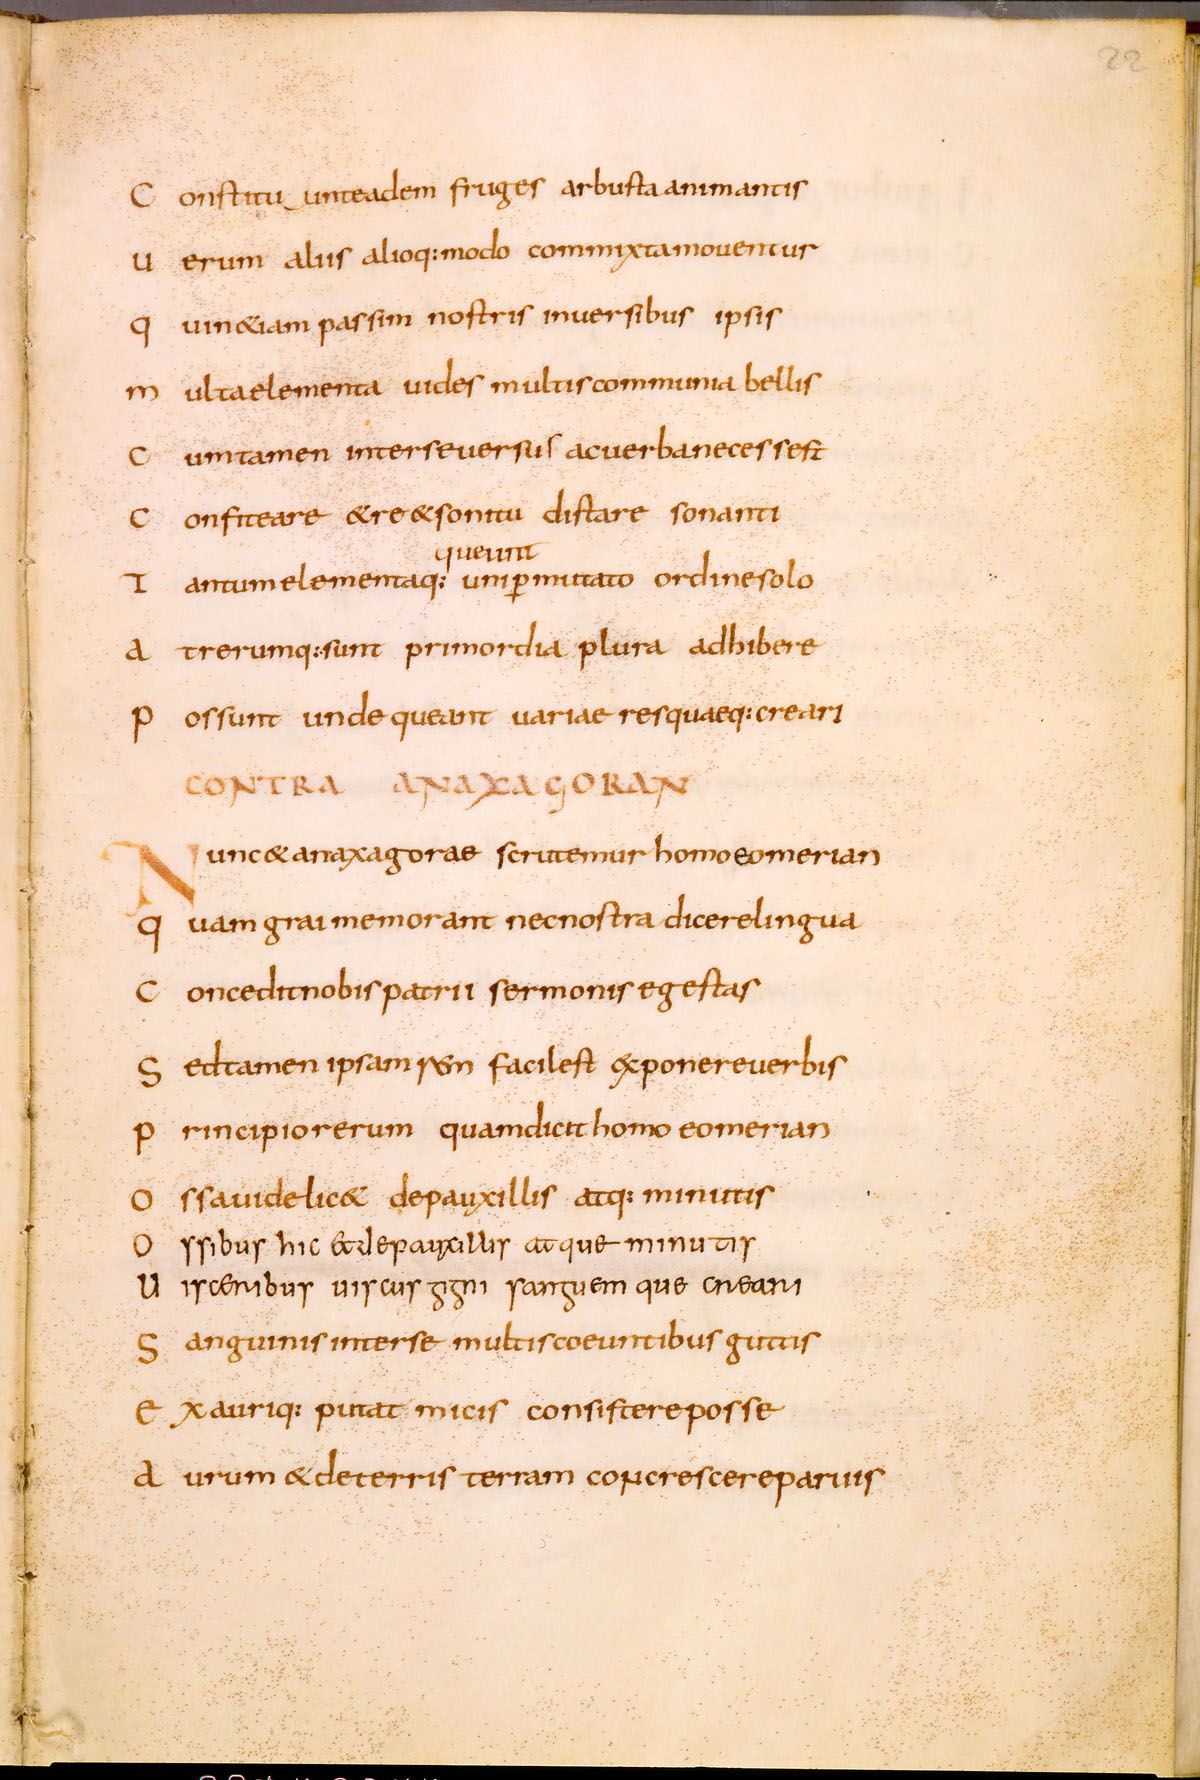 22
C onstitu unteadem fruges arbusta animantis
U erum aliis alioq: modo commixtamoventur
q uin&iam passim nostris inversibus ipsis
m ultaelementa uides multiscommunia bellis
C umtamen interseversus acverbanecessest
C onfiteare &re &sonitu distare sonanti
queunt
T antumelementaq: uniꝑmutato ordinesolo
A trerumq:sunt primordia plura adhibere
P ossunt unde queant variae resquaeq:creari
CONTRA ANAXAGORAN
N unc&anaxagorae scrutemur homoeomerian
q uam grai memorant necnostra dicerelingua
C onceditnobis patrii sermonis egestas
S edtamen ipsam rem facilest exponereverbis
P rincipiorerum quamdicit homo eomerian
O ssavidelic& depauxillis atq: minutis
O ssibus hic et depauxillis atque minutis
U isceribus viscus gigni sanguem que creari
S anguinis interse multiscoeuntibus guttis
E x auriq: putat micis consistereposse
A urum &deterris terram concrescereparvis